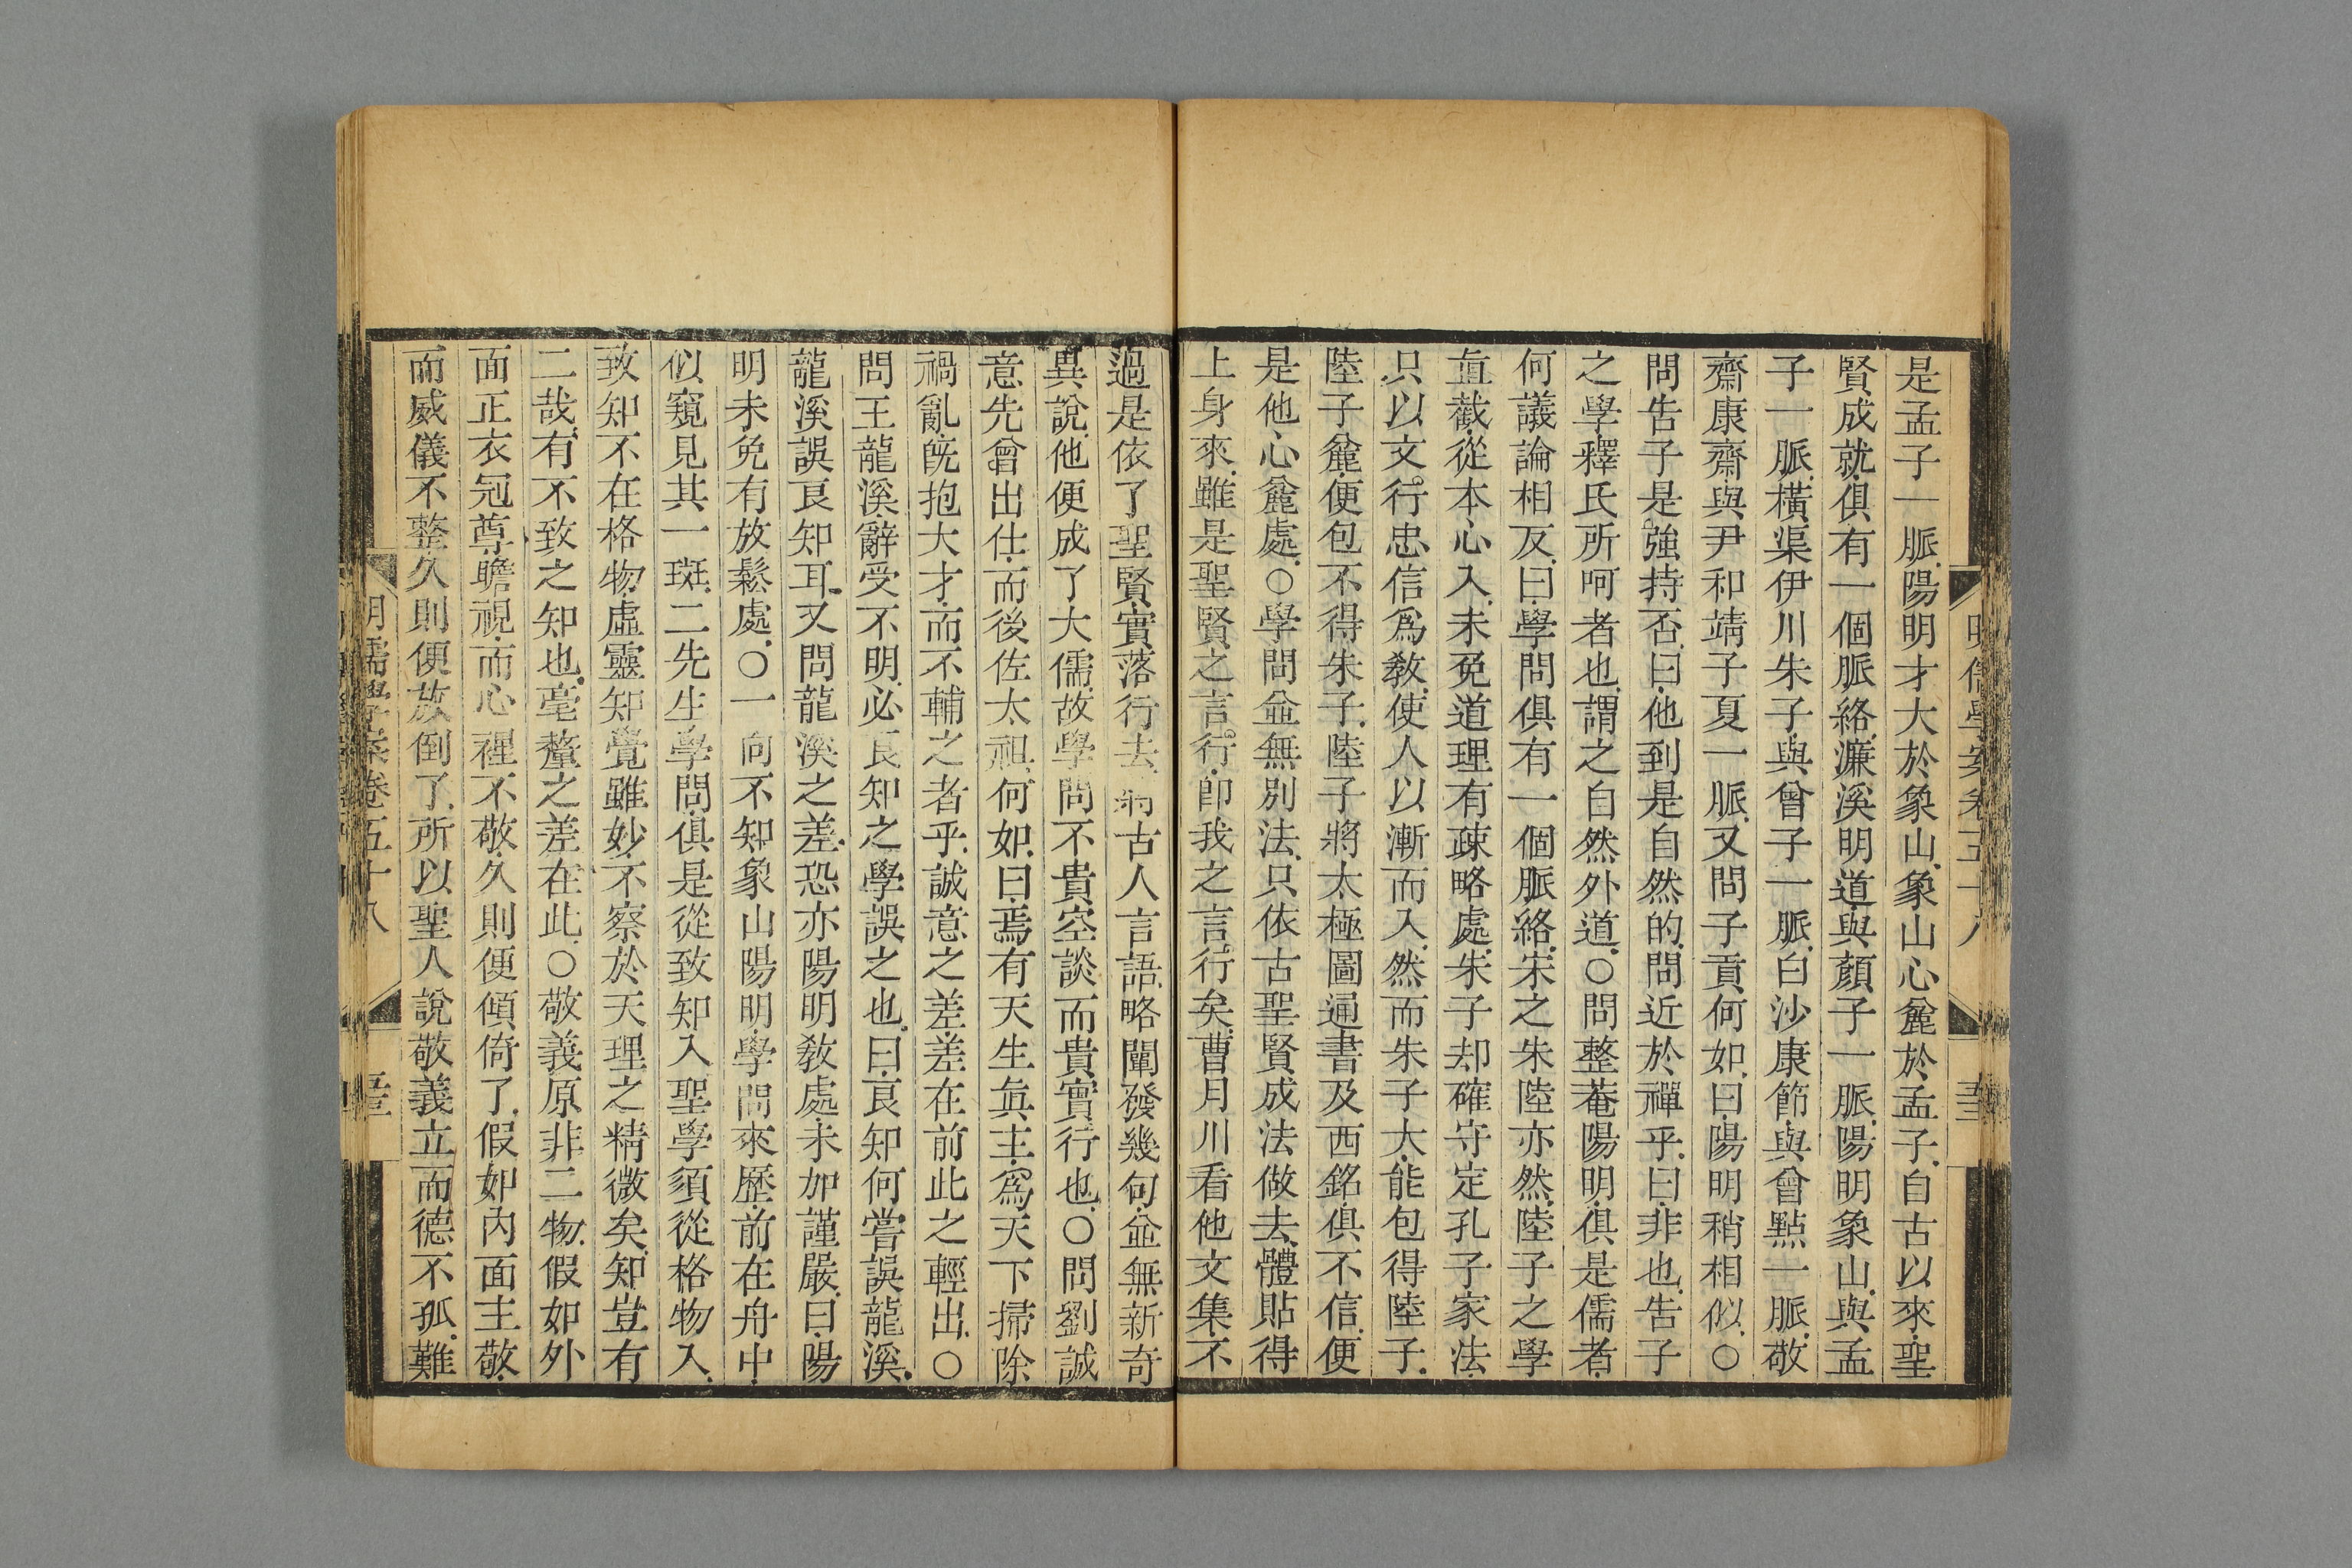 是孟子一脈陽明才大於象山象山心麄於孟子自古以來聖
賢成就俱有一個脈絡濂溪明道與顏子一脈陽明象山與孟
子一脈橫渠伊川朱子與曾子一脈白沙康節與曾點一脈敬
齋康齋與尹和靖子夏一脈又問子貢何如曰陽明稍相似○
問告子是強持否曰他到是自然的問近於禪乎曰非也告子
之學釋氏所呵者也謂之自然外道○問整菴陽明俱是儒者
何議論相反曰學問俱有一個脈絡宋之朱陸亦然陸子之學
直截從本心入未免道理有疎略處朱子却確守定孔子家法
只以文行忠信爲教使人以漸而入然而朱子大能包得陸子
陸子麄便包不得朱子陸子將太極圖通書及西銘俱不信便
是他心麄處○學問並無別法只依古聖賢成法做去體貼得
上身來雖是聖賢之言行即我之言行矣曹月川看他文集不
過是依了聖賢實落行去將古人言語略闡發幾句並無新奇
異說他便成了大儒故學問不貴空談而貴實行也○問劉誠
意先曾出仕而後佐太祖何如曰焉有天生眞主爲天下掃除
禍亂旣抱大才而不輔之者乎誠意之差差在前此之輕出○
問王龍溪辭受不明必良知之學誤之也曰良知何嘗誤龍溪
龍溪誤良知耳又問龍溪之差恐亦陽明教處未加謹嚴曰陽
明未免有放鬆處○一向不知象山陽明學問來歷前在舟中
似窺見其一斑二先生學問俱是從致知入聖學須從格物入
致知不在格物虛靈知覺雖妙不察於天理之精微矣知豈有
二哉有不致之知也毫釐之差在此○敬義原非二物假如外
面正衣冠尊瞻視而心裡不敬久則便傾倚了假如內面主敬
而威儀不整久則便放倒了所以聖人說敬義立而德不孤難
明儒學案卷五十八